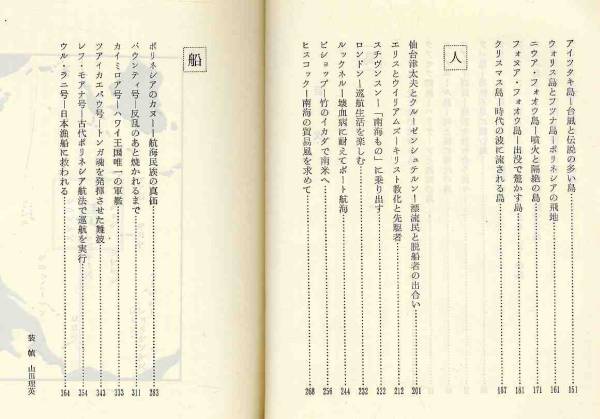 アイツタキ島―台風と伝説の多い島……151
ウォリス島とフツナ島―ポリネシアの飛地……161
ニウア・フォオウ島―噴火と隔絶の島……171
フォヌア・フォオウ島―出没で驚かす島……181
クリスマス島―時代の波に流される島……187
人
仙台津太夫とクルーゼンシュテルン―漂流民と脱船者の出合い……201
エリスとウイリアムズ―キリスト教化と先駆者……212
スチヴンスン―「南海もの」に乗り出す……222
ロンドン―巡航生活を楽しむ……232
ルックネル―壊血病に耐えてボート航海……244
ビショップ―竹のイカダで南米へ……256
ヒスコック―南海の貿易風を求めて……268
船
ポリネシアのカヌー―航海民族の真価……283
バウンティ号―反乱のあと焼かれるまで……311
カイミロア号―ハワイ王国唯一の軍艦……333
ツアイカエパウ号―トンガ魂を発揮させた難波……343
レフ・モアナ号―古代ポリネシア航法で巡航を実行……354
ウル・ラニ号―日本漁船に救われる……364
装幀 山田理英